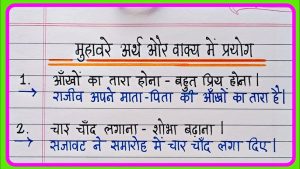 मुहावरे अर्थ और वाक्य में प्रयोग
1. आँखों का तारा होना - बहुत प्रिय होना।
→ राजीव अपने माता-पिता की आँखों का तारा है।
2. चार चाँद लगाना - शोभा बढ़ाना।
→ सजावट ने समारोह में चार चाँद लगा दिए।